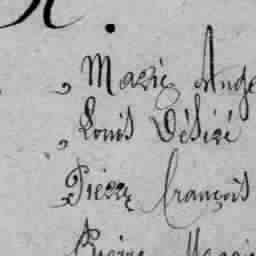 N.
, Marie Ange
, Louis Désiré
Pierre François
Pierre